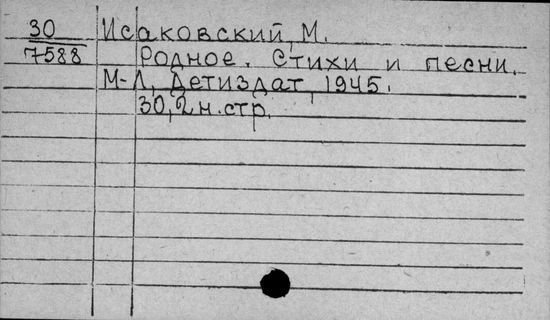 30 Исаковский, М.
7588 Родное. Стихи и песни.
М-Л, Детиздат, 1945.
30,2 н.стр.